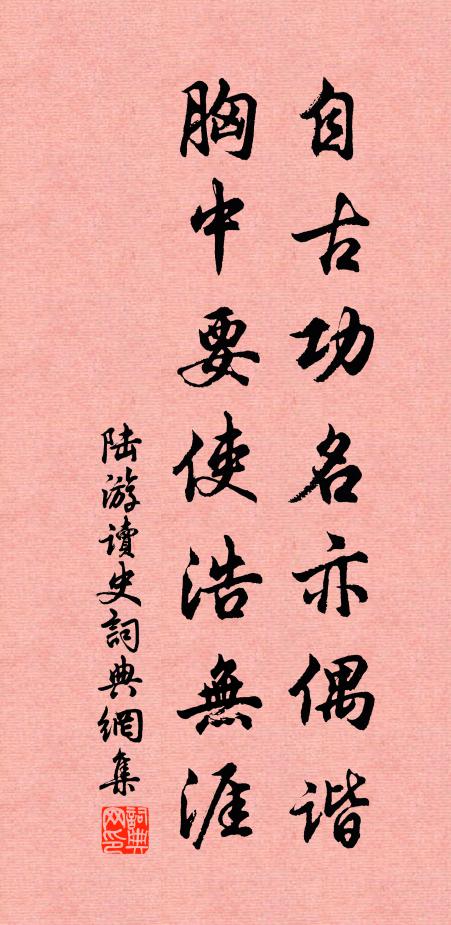 自古功名亦偶谐
胸中要使浩無涯
陆游讀史詞典網集
詞典网印